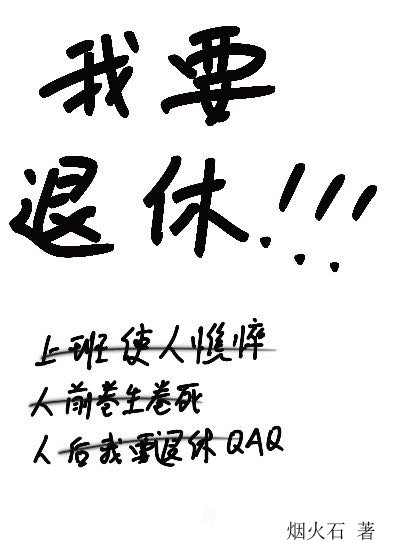 我要
退休!!!
上班使人憔悴
人前卷生卷死
人后我要退休QAQ
烟火石 著